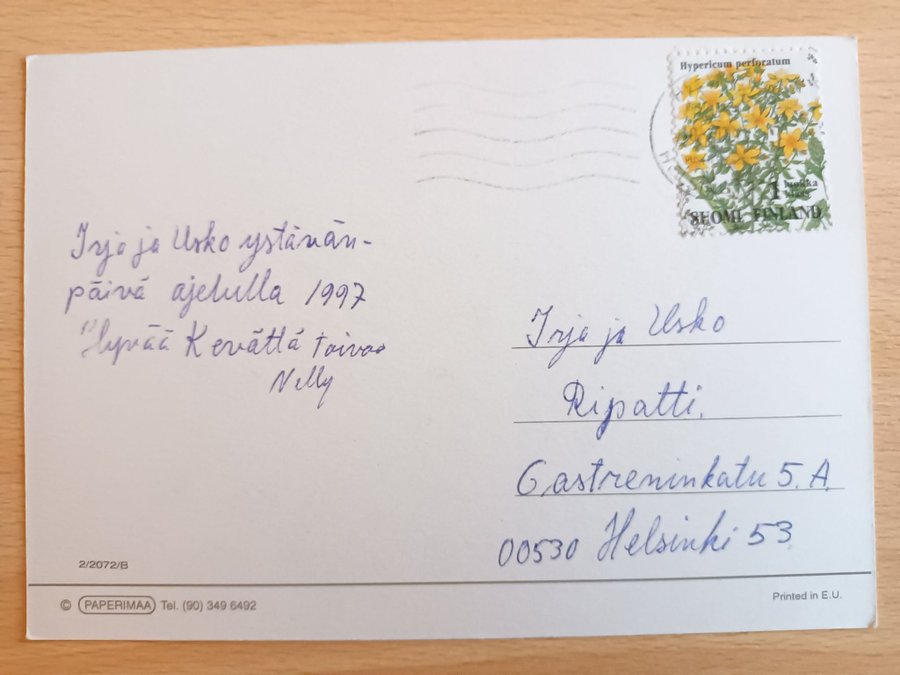 Hypericum perforatum
1 luokka
klass
SUOMI FINLAND
Irja ja Usko ystävän-
päivä ajelulla 1997
Hyvää Kevättä toivoo
Nelly
Irja ja Usko
Ripatti.
Castreninkatu 5. A.
00530 Helsinki 53
2/2072/B
© PAPERIMAA Tel. (90) 349 6492
Printed in E.U.